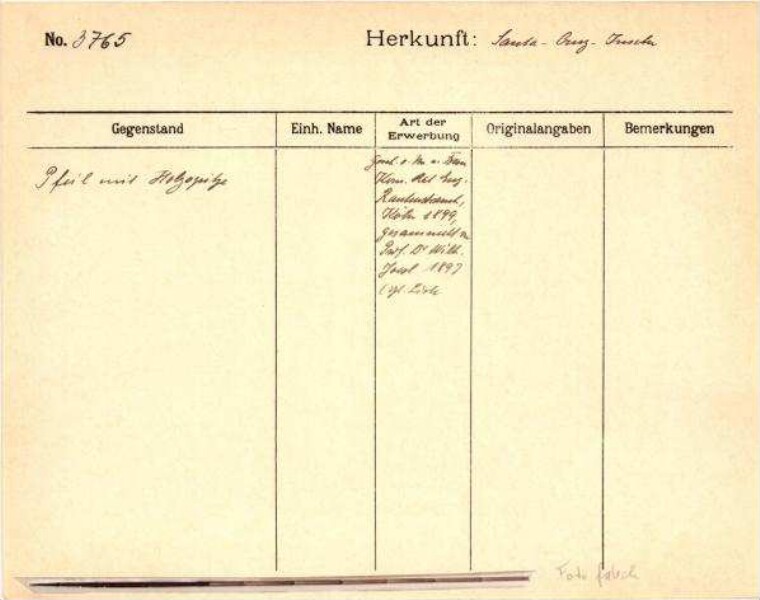 No. 3765
Herkunft: Santa-Cruz-Inseln
Gegenstand
Einh. Name
Art der
Erwerbung
Originalangaben
Bemerkungen
Pfeil mit Holzspitze
Gesch. v. Hn u. Frau
Kom. Rat Eug.
Rautenstrauch,
Köln 1899,
gesammelt v.
Prof. Dr Wilh.
Joest 1897
(vgl. Liste
Foto falsch